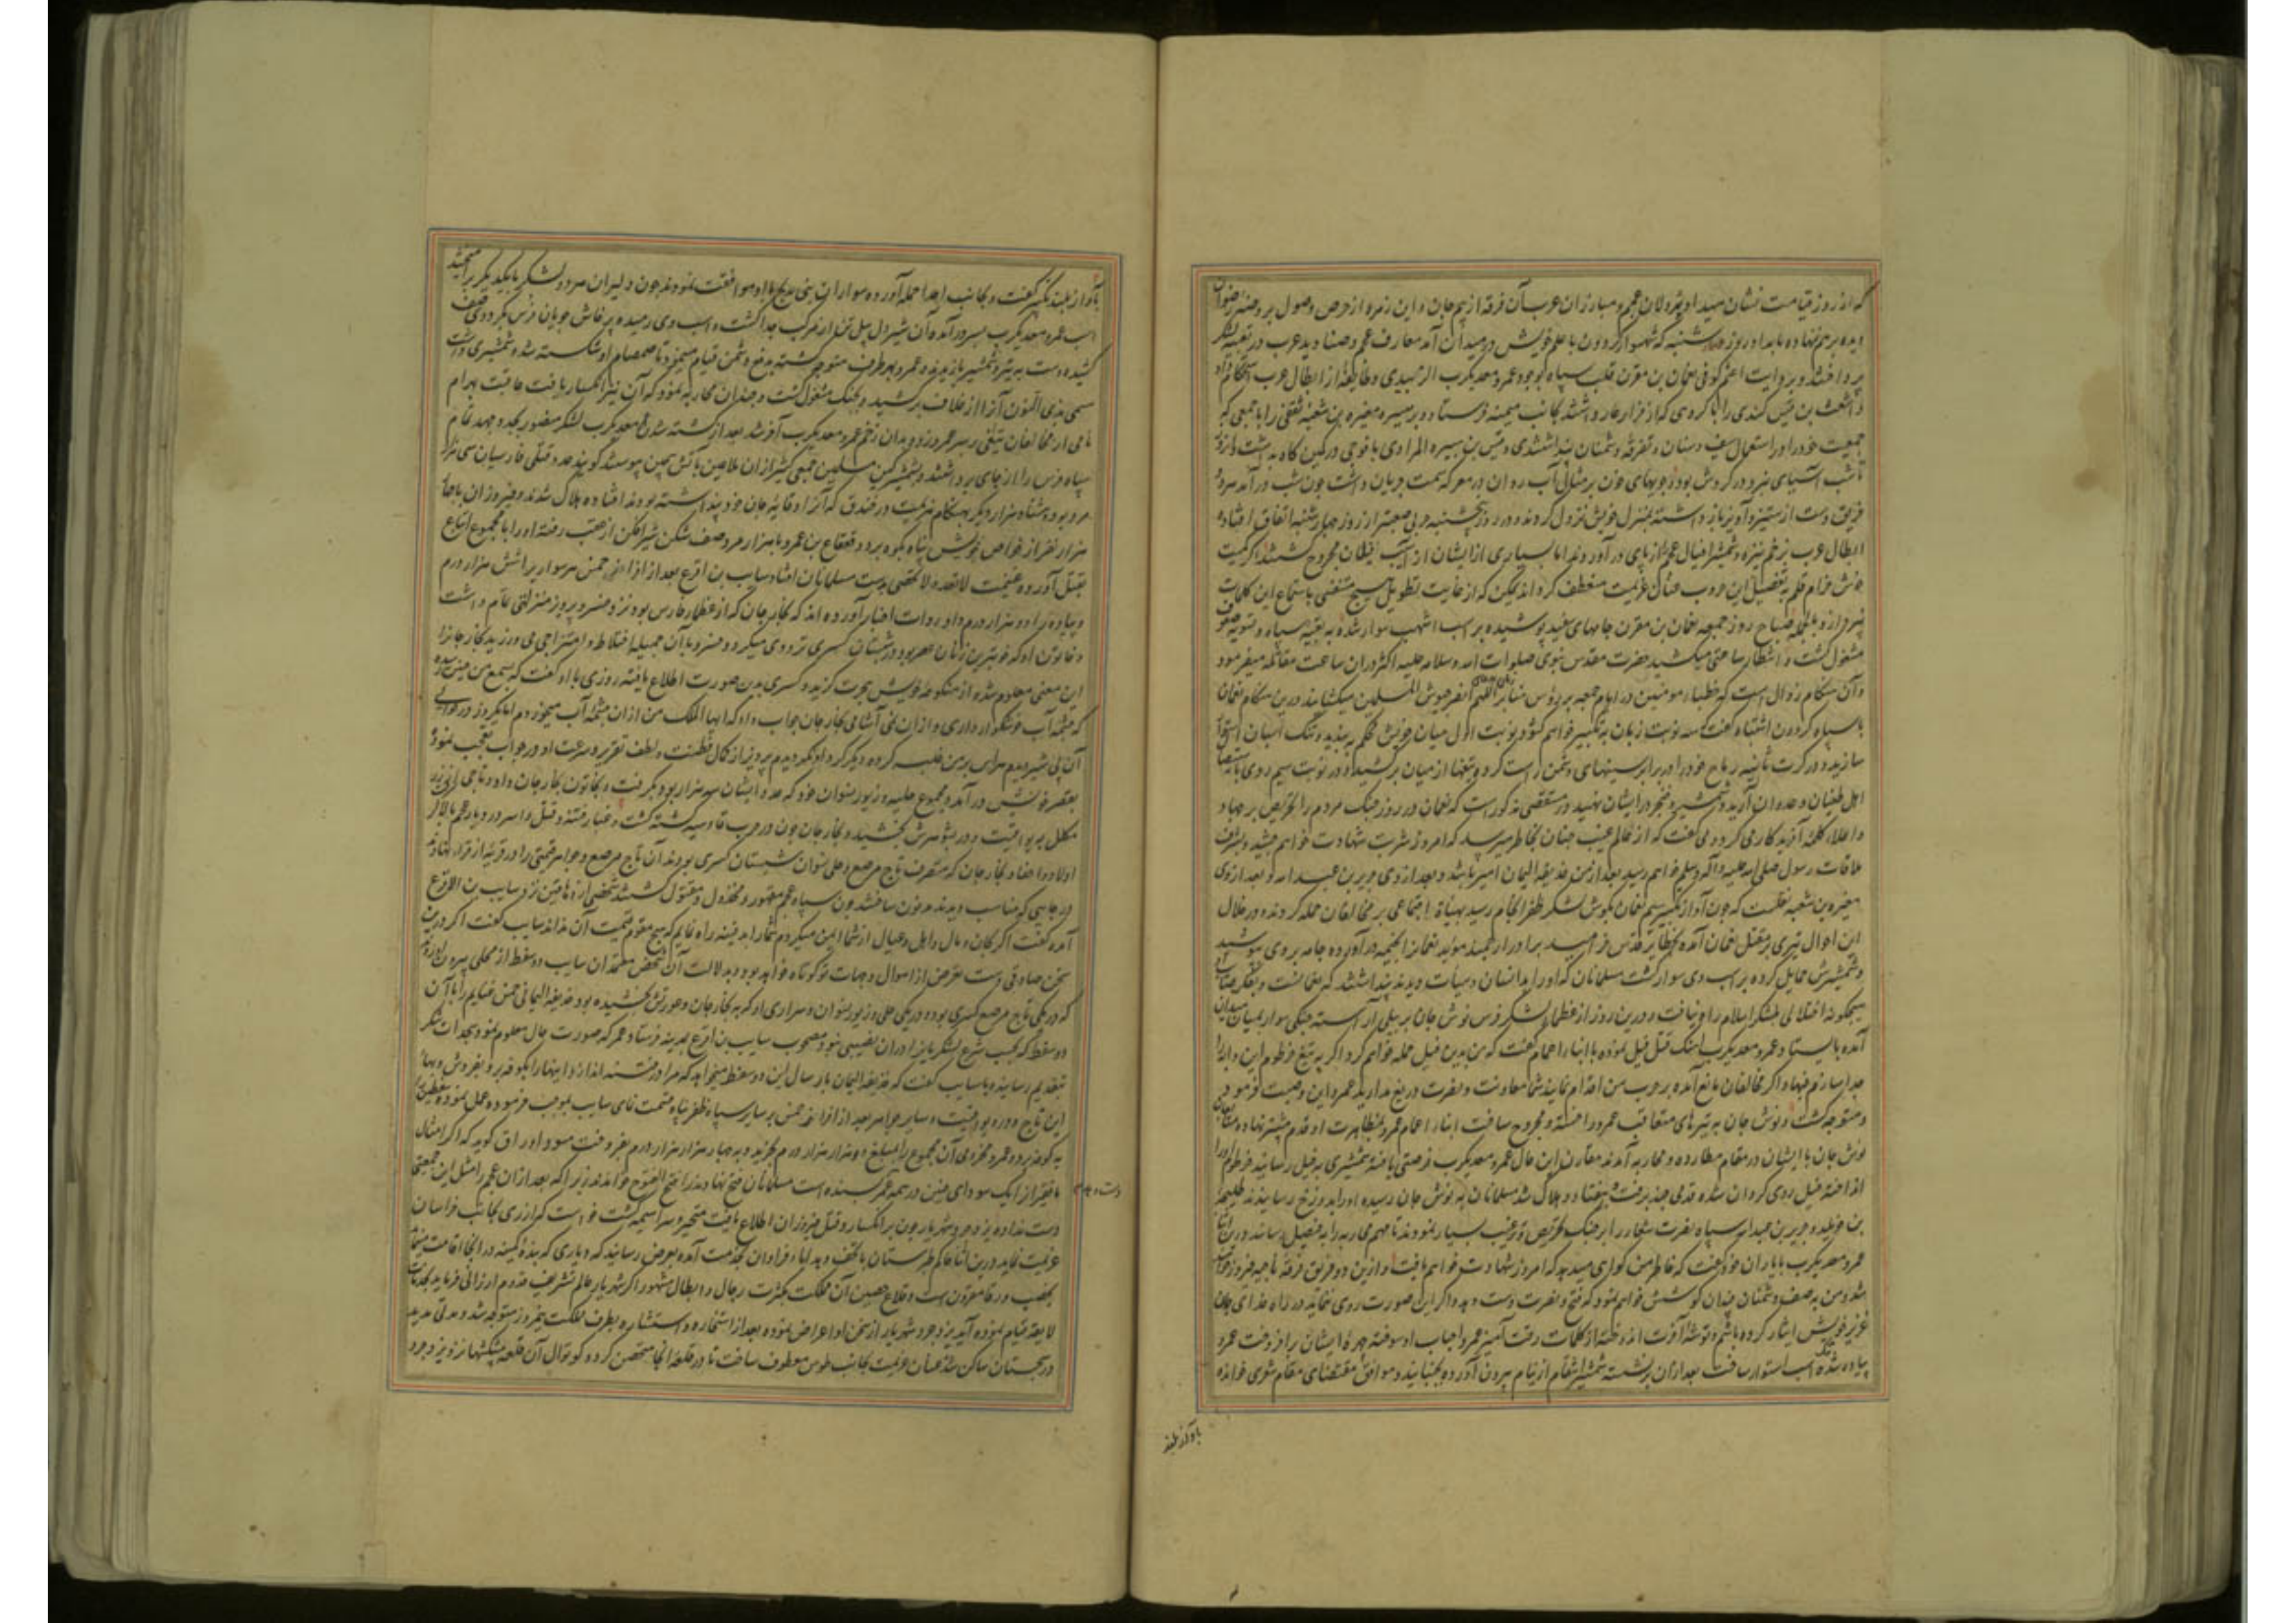 که از روز قیامت نشان میداد و پردلان عجم و مبارزان عرب آن فرقه از بیم جان و این زمره از حرص وصول بروضه رضوان
دیده برهم ننهاده بامداد روز چهارشنبه که شهسوار گردون با علم خویش در میدان آمد معارف عجم و صنادید عرب در تعبیه لشکر
پرداختند و بروایت اعثم کوفی نعمان بن مقرن قلب سپاه بوجود عمرو معدیکرب الزبیدی و طایفه از ابطال عرب استحکام داد
و اشعث بن قیس کندی را با گروهی که از فرار عار داشتند بجانب میمنه فرستاد و بر میسره مغیره بن شعبه ثقفی را با جمعی که
جمعیت خود را در استعمال سیف و سنان و تفرقه دشمنان پنداشتندی و قیس بن هبیره المرادی با فوجی در کمین کاه بداشت و از روز
تا شب آسیای نبرد در گردش بود و جویهای خون بر مثال آب روان در معرکه سمت جریان داشت چون شب درآمد هر دو
فریق دست از ستیز و آویز باز داشته بمنزل خویش نزول کردند و در روز پنجشنبه حربی صعبتر از روز چهارشنبه اتفاق افتاد و
ابطال عرب بزخم نیزه و شمشیر افیال عجم را از پای درآوردند اما بسیاری از ایشان از آسیب فیلان مجروح گشتند اگر کمیت
خوش خرام قلم بتفصیل این حروب عنان عزیمت منعطف گرداند یمکن که از غایت تطویل هیچ متنفسی باستماع این کلمات
نپردازد بالجمله صباح روز جمعه نعمان بن مقرن جامهای سفید پوشیده بر اسب اشهب سوار شده به تعبیه سپاه و تسویه صفوف
مشغول گشت و انتظار ساعتی میکشید حضرت مقدس نبوی صلوات الله و سلامه علیه اکثر دران ساعت مقاتله میفرمود
و آن هنگام زوال است که خطباء مومنین در ایام جمعه بر رؤس منابر زبان بدعای اللهم انصر جیوش المسلمین میگشایند درین هنگام نعمان
با سپاه گردون اشتباه گفت سه نوبت زبان به تکبیر خواهم گشود نوبت اول میان خویش محکم به بندید و تنگ اسبان استوار
سازید و در کرت ثانیه رماح خود را در برابر سینهای دشمن راست کرده تیغها از میان برکشید و در نوبت سیم روی باستیصال
اهل طغیان و عدوان آرید و شمشیر و خنجر در ایشان نهید در مستقصی مذکورست که نعمان در روز جنگ مردم را تحریض بر جهاد
و اعلاء کلمه آفریدکار می کرد و می گفت که از عالم غیب چنان بخاطر میرسد که امروز شربت شهادت خواهم چشید و بشرف
ملاقات رسول صلی الله علیه و آله و سلم خواهم رسید بعد از من حذیفه الیمان امیر باشد و بعد از وی جریر بن عبدالله و بعد از وی
مغیره بن شعبه نقلست که چون آواز تکبیر سیم نعمان بگوش لشکر ظفر انجام رسید بهیأة اجتماعی بر مخالفان حمله کردند و در خلال
این احوال تیری بر مقتل نعمان آمده بحظایر قدس خرامید برادر ارجمند سوید نعمانرا بخیمه درآورده جامه بروی پوشید
و شمشیرش حمایل کرده بر اسب وی سوار گشت مسلمانان که او را بدانسان و هیأت دیدند پنداشتند که نعمانست
هیچگونه اختلالی بلشکر اسلام راه نیافت و درین روز از عظماء لشکر فرس نوش جان بر پیلی آراسته جنگی سوار بمیان میدان
آمده بایستاد و عمرو معدیکرب آهنگ قتل فیل نموده با ابناء اعمام گفت که من بدین فیل حمله خواهم کرد اگر به تیغ خرطوم این دابه را
جدا سازم فبها و اگر مخالفان مانع آمده بر حرب من اقدام نمایند شما معاونت و نصرت دریغ مدارید عمرو این وصیت فرمود
و متوجه گشت و نوش جان به تیرهای متعاقب عمرو را خسته و مجروح ساخت ابناء اعمام عمرو بمظاهرت او قدم پیشتر نهاده متابعان
نوش جان با ایشان در مقام مطارده و محاربه آمدند مقارن این حال عمرو معدیکرب فرصتی یافته شمشیری به فیل رسانید خرطوم او را
انداخته فیل روی گردان شده قدمی چند برفت و بیفتاد و هلاک شد مسلمانان به نوش جان رسیده او را بدوزخ رسانیدند طلیحه
بن خویلد و جریر بن عبدالله سپاه نصرت شعار را بر جنگ تحریص و ترغیب بسیار نمودند تا مهم محاربه را به فیصل رسانند درین اثنا
عمرو معدیکرب با یاران خود گفت که خاطر من گواهی میدهد که امروز شهادت خواهم یافت و ازین دو فریق فرقه ناجیه فیروز خواهند
شد و من به صف دشمنان چندان کوشش خواهم نمود که فتح و نصرت دست دهد و اگر این صورت روی ننماید در راه خدای جان
عزیز خویش ایثار کرده باشم و توشه آخرت اندوخته از کلمات رقت آمیز عمرو احباب او سوخته چهره ایشان برافروخت عمرو
پیاده شده تنگ اسب استوار ساخت بعد ازان برنشسته شمشیر انتقام از نیام بیرون آورده بجنبانید و موافق مقتضای مقام شعری خوانده
بآواز بلند
بآواز بلند تکبیر گفت و بجانب اعدا حمله آورده سواران بنی مذحج با او موافقت نمودند چون دلیران هر دو لشکر با یکدیگر برآمیختند
اسب عمرو معدیکرب بسر درآمده آن شیردل پیل تن از مرکب جدا گشت و اسب وی رمیده پرخاش جویان فرس بگرد وی صف
کشیده دست به تیر و شمشیر یازیدند و عمرو بهر طرف متوجه گشته بدفع دشمن قیام مینمود تا صمصام او شکسته شد و شمشیری داشت
مسمی بذی النون آنرا از غلاف برکشید و بجنگ مشغول گشت و چندان محاربه نمود که آن نیز انکسار یافت عاقبت بهرام
نامی از مخالفان تیغی بر سر عمرو زد و بدان زخم عمرو معدیکرب آخر شد بعد از کشته شدن معدیکرب لشکر منصور بجد و جهد تمام
سپاه فرس را از جای برداشتند و بشمشیر کین مسلمین جمعی کثیر ازان ملاعین باتش سجین پیوستند گویند عدد قتلی فارسیان سی هزار
مرد بود و هشتاد هزار دیگر بهنگام هزیمت در خندق که آنرا وقایه جان خود پنداشته بودند افتاده هلاک شدند و فیروزان با چهار
هزار نفر از خواص خویش پناه بکوه برد و قعقاع بن عمرو با هزار مرد صف شکن شیرافکن از عقب رفته او را با مجموع اتباع
بقتل آورده غنیمت لا تعد و لا تحصی بدست مسلمانان افتاد سایب بن اقرع بعد از افراز خمس هر سوار را شش هزار درم
و پیاده را دو هزار درم داد رواة اخبار آورده اند که نخارجان که از عظماء فارس بود نزد خسرو پرویز منزلتی تمام داشت
و خاتون او که خوبترین زنان عصر بود در شبستان کسری تردد می میکرد و خسرو با آن جمیله اختلاط و امتزاج می ورزید نخارجان را
این معنی معلوم شده از منکوحه خویش هجرت گزید و کسری بدین صورت اطلاع یافته روزی با او گفت که بسمع من چنین رسیده
که چشمه آب خوشگوار داری و ازان نمی آشامی نخارجان جواب داد که ایها الملک من ازان چشمه آب میخوردم اما یکروز در حوالی
آن پی شیر دیدم هراس بر من غلبه کرده دیگر گرد او نگردیدم پرویز از کمال فطنت و لطف تقریر و سرعت او در جواب تعجب نموده
بقصر خویش درآمد و مجموع حلیه و زیور نسوان خود که عدد ایشان سه هزار بود بگرفت و بخاتون نخارجان داد و تاجی از زر
مکلل بیواقیت و در بشوهرش بخشید و نخارجان چون در حرب قادسیه کشته گشت و غبار فتنه و قتل و اسر در دیار عجم بالا گرفت
اولاد و احفاد نخارجان که متصرف تاج مرصع و حلی نسوان شبستان کسری بودند آن تاج مرصع و جواهر قیمتی را در قریه از قراء نهاوند
در جایی که مناسب دیدند مدفون ساختند چون سپاه عجم مقهور و مخذول و مقتول گشتند شخصی از دهاقین نزد سایب بن الاقرع
آمده گفت اگر بجان و مال و اهل و عیال از شما ایمن میگردم شما را بدفینه راه نمایم که هیچ مقوم قیمت آن نداند سایب گفت اگر درین
سخن صادقی دست تعرض از اموال و جهات تو کوتاه خواهد بود و بدلالت آن شخص معتمدان سایب دو سفط از محلی بیرون آوردند
که در یکی تاج مرصع کسری بوده و در یکی حلی و زیور نسوان و سراری او که به نخارجان و عورتش بخشیده بود حذیفه الیمانی خمس غنایم را با آن
دو سفط که بحسب شرع لشکریانرا دران نصیبی نبود مصحوب سایب بن اقرع بمدینه فرستاد عمر که صورت حال معلوم نمود سجدات شکر
بتقدیم رسانید و با سایب گفت که حذیفه الیمان بارسال این دو سفط میخواهد که مرا در فتنه اندازد اینها را بکوفه بر و بفروش و بهاء
این تاج و دره یواقیت و سایر جواهر بعد از افراز خمس بر سایر سپاه ظفر پناه قسمت نمای سایب بموجب فرموده عمل نموده سفطین را
به کوفه برده عمرو مخزومی آن مجموع را بمبلغ دو هزار هزار درم بخرید و به چهار هزار هزار درم بفروخت مسود اوراق گوید که اگر امثال
ما فقیر از یک سودای چنین در همه عمر بسنده است مسلمانان فتح نهاوند را فتح الفتوح خوانند زیرا که بعد ازان عجم را مثل این جمعیتی
دست نداد و یزدجرد شهریار چون بر انکسار و قتل فیروزان اطلاع یافت متحیر و سراسیمه گشت خواست که از ری بجانب خراسان
عزیمت نماید درین اثنا حاکم طبرستان با تحف و هدایاء فراوان بخدمت آمده بعرض رسانید که دیاری که بنده کمینه در انجا اقامت مینماید
بخصب و رفا مقرون است و قلاع حصین آن مملکت بکثرت رجال و ابطال مشهور اگر شهریار عالم تشریف قدوم ارزانی فرماید بخدمات
لایقه قیام نموده آید یزدجرد شهریار از سخن او اعراض نموده بعد از استخاره و استشاره بطرف مملکت نیمروز متوجه شد و مدتی مدید
در سجستان ساکن شد عنان عزیمت بجانب طوس معطوف ساخت تا در قلعه انجا متحصن گردد کوتوال آن قلعه پیشکشها نزد یزدجرد